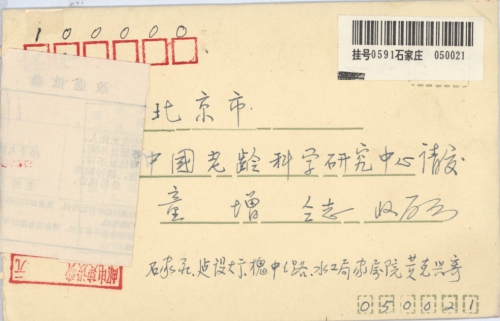 100000
挂号0591石家庄 050021
改退批条
北京市
中國老龄科学研究中心请交
童增 仝志 收启
石家庄、建设大街、槐中路、水工局家属院 黄克兴寄
050021